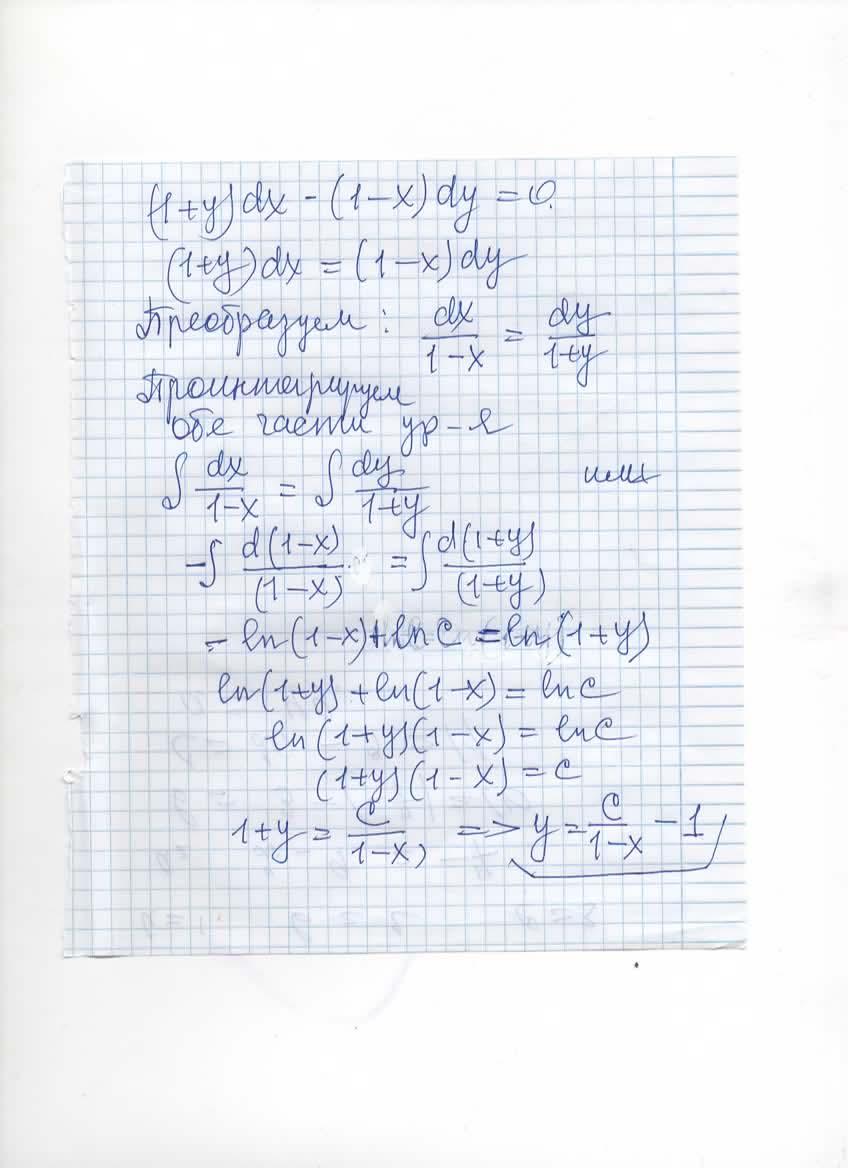 (1+y)dx - (1-x)dy = 0.
(1+y)dx = (1-x)dy
Преобразуем: dx/(1-x) = dy/(1+y)
Проинтегрируем
обе части ур-я
∫ dx/(1-x) = ∫ dy/(1+y) или
-∫ d(1-x)/(1-x) = ∫ d(1+y)/(1+y)
- ln(1-x) + ln C = ln(1+y)
ln(1+y) + ln(1-x) = ln C
ln(1+y)(1-x) = ln C
(1+y)(1-x) = C
1+y = C/(1-x), => y = C/(1-x) - 1